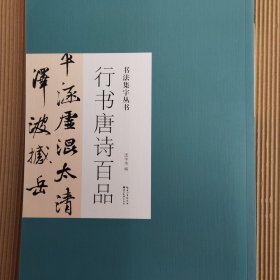 平涵虛混太清
澤波撼岳
书法集字丛书
行书唐诗百品